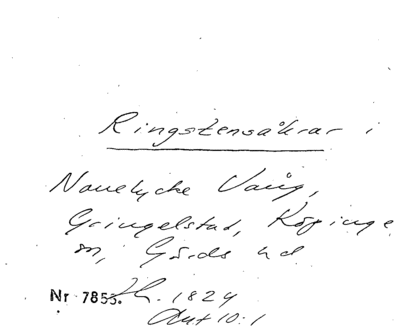 Ringstensåkrar i
Vång,
Gringelstad, Köpinge
sn, Gärds hd
Nr 7853. 1824
Aut 10:1